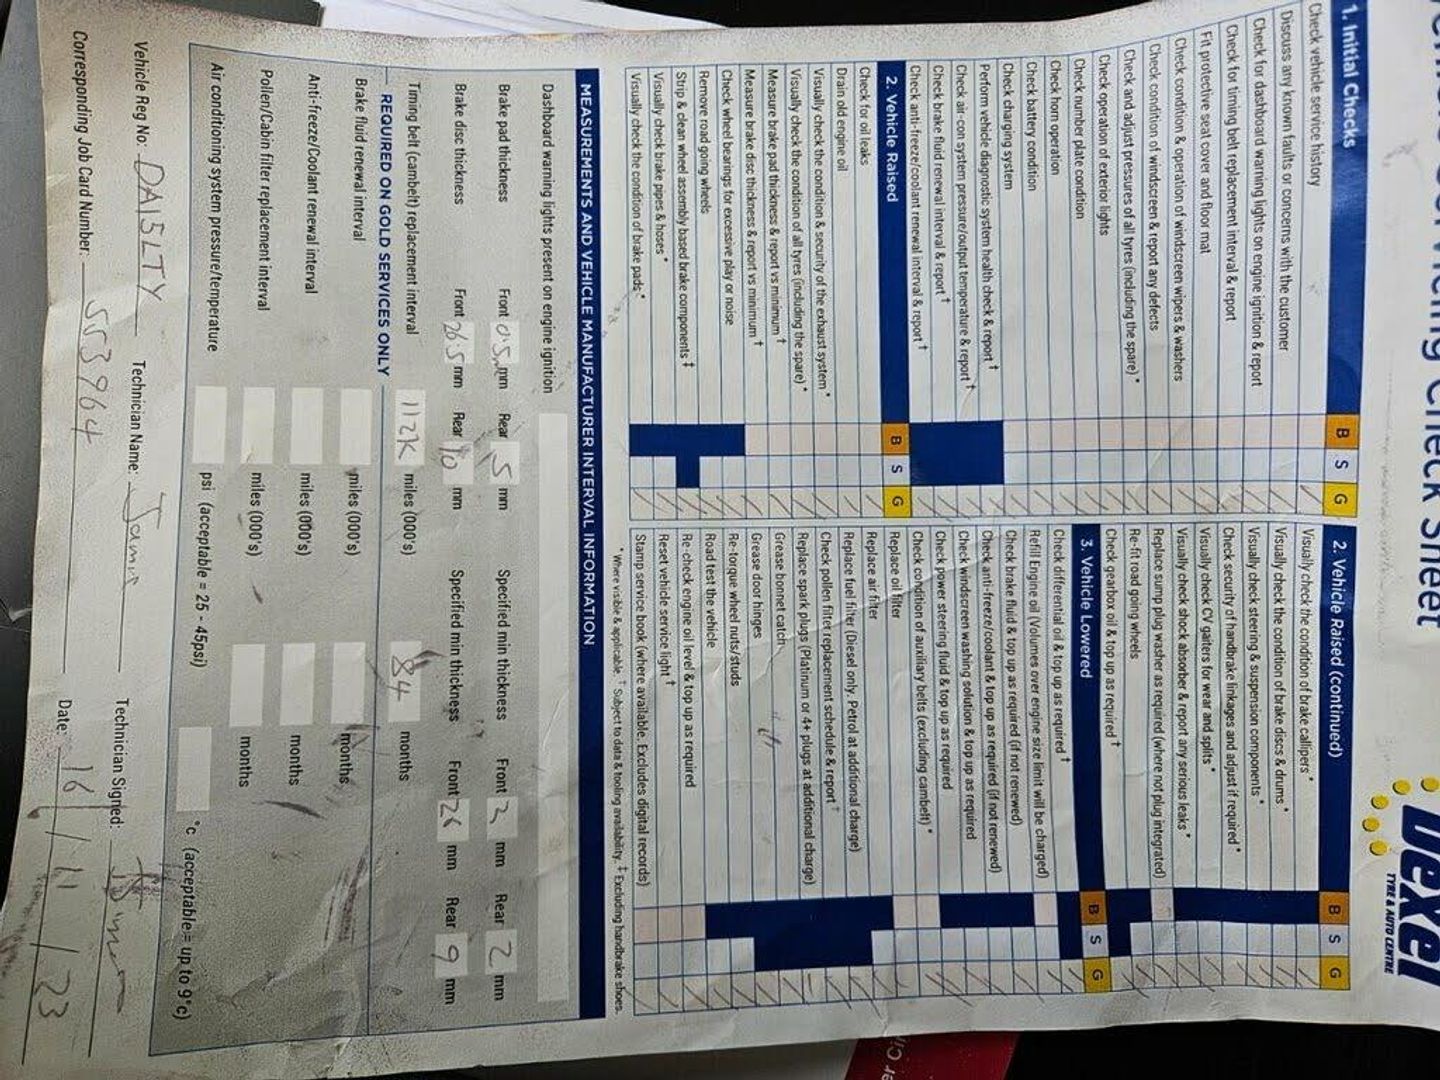 Vehicle Servicing Check Sheet
Dexel
TYRE & AUTO CENTRE
1. Initial Checks B S G
Check vehicle service history
Discuss any known faults or concerns with the customer
Check for dashboard warning lights on engine ignition & report
Check for timing belt replacement interval & report
Fit protective seat cover and floor mat
Check condition & operation of windscreen wipers & washers
Check condition of windscreen & report any defects
Check and adjust pressures of all tyres (including the spare) *
Check operation of exterior lights
Check number plate condition
Check horn operation
Check battery condition
Check charging system
Perform vehicle diagnostic system health check & report †
Check air-con system pressure/output temperature & report †
Check brake fluid renewal interval & report †
Check anti-freeze/coolant renewal interval & report †
2. Vehicle Raised B S G
Check for oil leaks
Drain old engine oil
Visually check the condition & security of the exhaust system *
Visually check the condition of all tyres (including the spare) *
Measure brake pad thickness & report vs minimum †
Measure brake disc thickness & report vs minimum †
Check wheel bearings for excessive play or noise
Remove road going wheels
Strip & clean wheel assembly based brake components ‡
Visually check brake pipes & hoses *
Visually check the condition of brake pads *
2. Vehicle Raised (continued) B S G
Visually check the condition of brake callipers *
Visually check the condition of brake discs & drums *
Visually check steering & suspension components *
Check security of handbrake linkages and adjust if required *
Visually check CV gaiters for wear and splits *
Visually check shock absorber & report any serious leaks *
Replace sump plug washer as required (where not plug integrated)
Re-fit road going wheels
Check gearbox oil & top up as required †
3. Vehicle Lowered B S G
Check differential oil & top up as required †
Refill Engine oil (Volumes over engine size limit will be charged)
Check brake fluid & top up as required (if not renewed)
Check anti-freeze/coolant & top up as required (if not renewed)
Check windscreen washing solution & top up as required
Check power steering fluid & top up as required
Check condition of auxiliary belts (excluding cambelt) *
Replace oil filter
Replace air filter
Replace fuel filter (Diesel only. Petrol at additional charge)
Check pollen filter replacement schedule & report †
Replace spark plugs (Platinum or 4+ plugs at additional charge)
Grease bonnet catch
Grease door hinges
Re-torque wheel nuts/studs
Road test the vehicle
Re-check engine oil level & top up as required
Reset vehicle service light †
Stamp service book (where available. Excludes digital records)
* Where visible & applicable. † Subject to data & tooling availability. ‡ Excluding handbrake shoes.
MEASUREMENTS AND VEHICLE MANUFACTURER INTERVAL INFORMATION
Dashboard warning lights present on engine ignition
Brake pad thickness Front 0.5 mm Rear 5 mm Specified min thickness Front 2 mm Rear 2 mm
Brake disc thickness Front 26.5 mm Rear 10 mm Specified min thickness Front 26 mm Rear 9 mm
Timing belt (cambelt) replacement interval 112K miles (000's) 84 months
REQUIRED ON GOLD SERVICES ONLY
Brake fluid renewal interval miles (000's) months
Anti-freeze/Coolant renewal interval miles (000's) months
Pollen/Cabin filter replacement interval miles (000's) months
Air conditioning system pressure/temperature psi (acceptable = 25 - 45psi) °c (acceptable = up to 9°c)
Vehicle Reg No: DA15LTY Technician Name: Technician Signed:
Corresponding Job Card Number: 553964 Date: 16/11/23